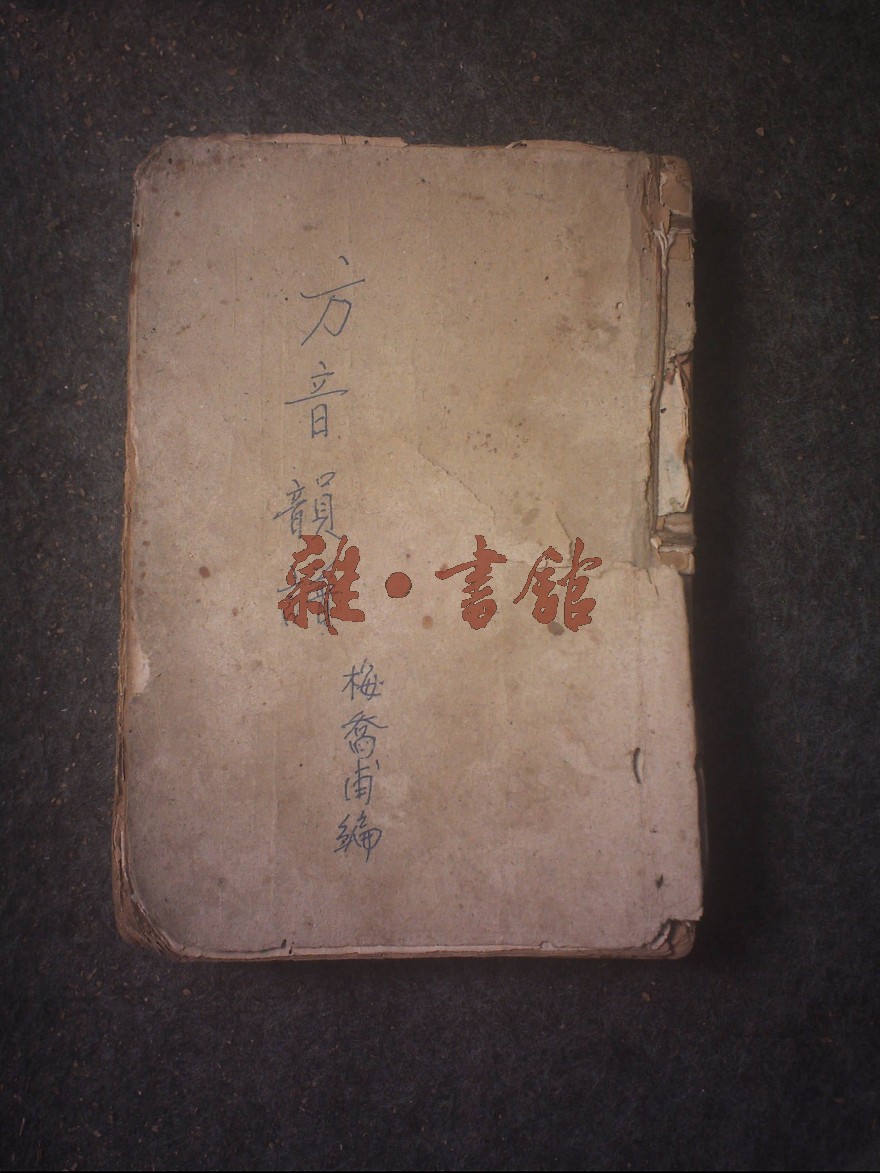 方音韻
梅喬甫編
雜·書館